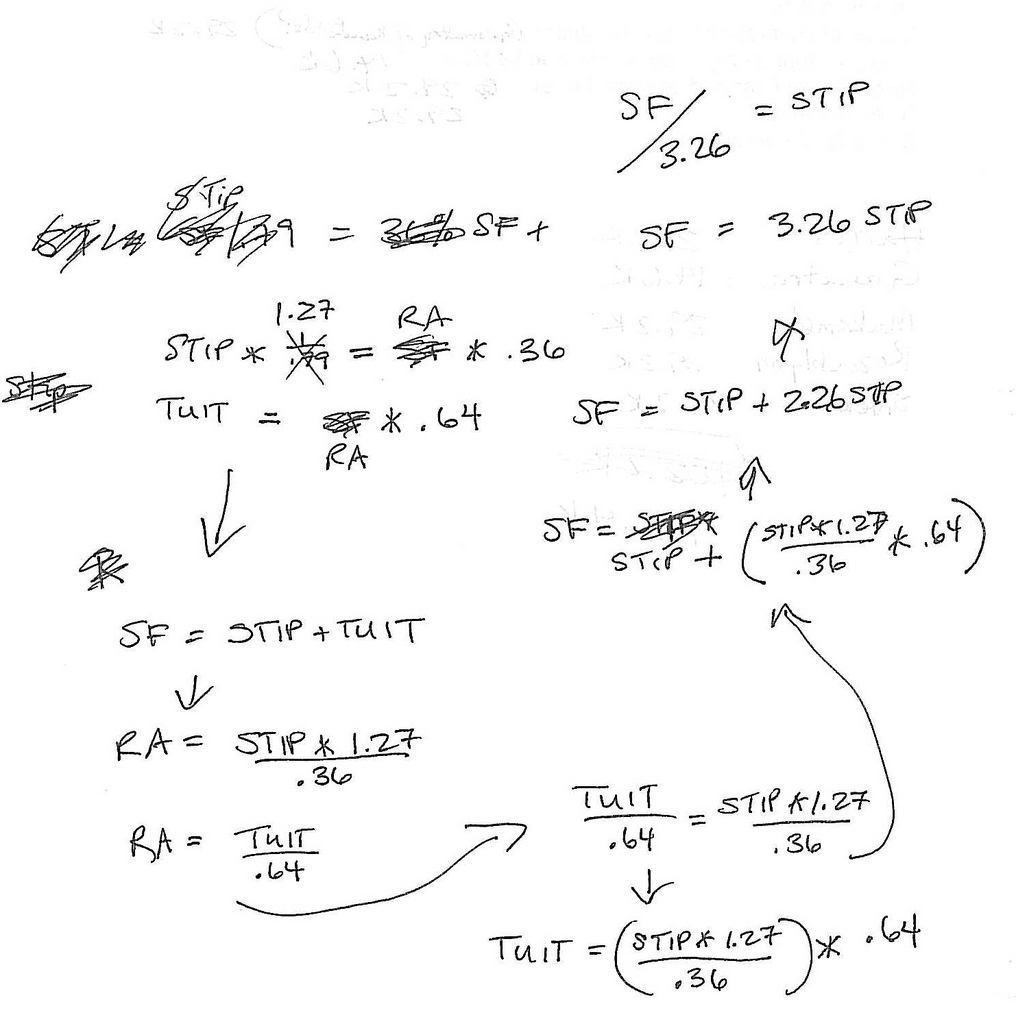 SF/3.26 = STIP
STIP
= SF +
SF = 3.26 STIP
1.27 RA
STIP * = * .36
TUIT = * .64
RA
SF = STIP + 2.26 STIP
SF = STIP +
(STIP * 1.27 / .36 * .64)
SF = STIP + TUIT
RA = STIP * 1.27 / .36
RA = TUIT / .64
TUIT / .64 = STIP * 1.27 / .36
TUIT = (STIP * 1.27 / .36) * .64